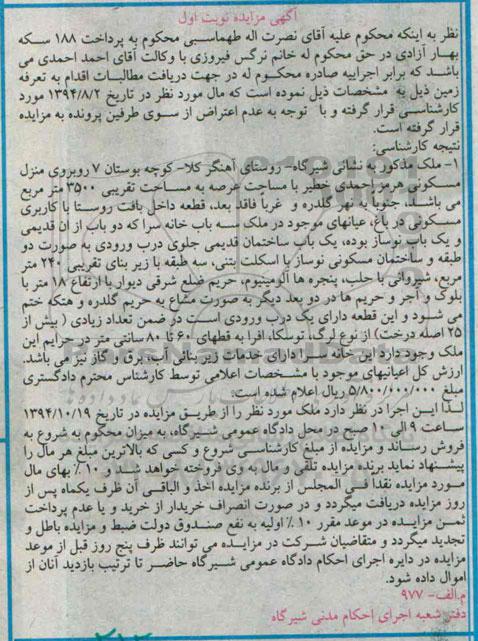 آگهی مزایده نوبت اول
نظر به اینکه محکوم علیه آقای نصرت اله طهماسبی محکوم به پرداخت ۱۸۸ سکه
بهار آزادی در حق محکوم له خانم نرگس فیروزی با وکالت آقای احمد احمدی می
باشد که برابر اجراییه صادره محکوم له در جهت دریافت مطالبات اقدام به تعرفه
زمین ذیل به مشخصات ذیل نموده است که مال مورد نظر در تاریخ ۱۳۹۴/۸/۲ مورد
کارشناسی قرار گرفته و با توجه به عدم اعتراض از سوی طرفین پرونده به مزایده
قرار گرفته است.
نتیجه کارشناسی:
۱- ملک مذکور به نشانی شیرگاه- روستای آهنگر کلا- کوچه بوستان ۷ روبروی منزل
مسکونی هرمز احمدی خطیر با مساحت عرصه به مساحت تقریبی ۳۵۰۰ متر مربع
می باشد، جنوباً به نهر گلدره و غرباً فاقد بعد، قطعه داخل بافت روستا با کاربری
مسکونی در باغ، عیانهای موجود در ملک سه باب خانه سرا که دو باب از ان قدیمی
و یک باب نوساز بوده، یک باب ساختمان قدیمی جلوی درب ورودی به صورت دو
طبقه و ساختمان مسکونی نوساز با اسکلت بتنی، سه طبقه با زیر بنای تقریبی ۲۴۰ متر
مربع، شیروانی با حلب، پنجره ها آلومینیوم، حریم ضلع شرقی دیوار با ارتفاع ۱۸ متر با
بلوک و آجر و حریم ها در دو بعد دیگر به صورت مشاع به حریم گلدره و هتکه ختم
می شود و این قطعه دارای یک درب ورودی است در ضمن تعداد زیادی ( بیش از
۲۵ اصله درخت) از نوع لرگ، توسکا، افرا به قطهای ۶۰ تا ۸۰ سانتی متر در حرایم این
ملک وجود دارد این خانه سرا دارای خدمات زیر بنائی آب، برق و گاز نیز می باشد.
ارزش کل اعیانیهای موجود با مشخصات اعلامی توسط کارشناس محترم دادگستری
مبلغ ۵/۸۰۰/۰۰۰/۰۰۰ ریال اعلام شده است.
لذا این اجرا در نظر دارد ملک مورد نظر را از طریق مزایده در تاریخ ۱۳۹۴/۱۰/۱۹
ساعت ۹ الی ۱۰ صبح در محل دادگاه عمومی شیرگاه، به میزان محکوم به شروع به
فروش رساند و مزایده از مبلغ کارشناسی شروع و کسی که بالاترین مبلغ هر مال را
پیشنهاد نماید برنده مزایده تلقی و مال به وی فروخته خواهد شد و ۱۰ ٪ بهای مال
مورد مزایده نقدا فی المجلس از برنده مزایده اخذ و الباقی آن ظرف یکماه پس از
روز مزایده دریافت میگردد و در صورت انصراف خریدار از خرید و یا عدم پرداخت
ثمن مزایده در موعد مقرر ۱۰ ٪ اولیه به نفع صندوق دولت ضبط و مزایده باطل و
تجدید میگردد و متقاضیان شرکت در مزایده می توانند ظرف پنج روز قبل از موعد
مزایده در دایره اجرای احکام دادگاه عمومی شیرگاه حاضر تا ترتیب بازدید آنان از
اموال داده شود.
م.الف- ۹۷۷
دفتر شعبه اجرای احکام مدنی شیرگاه